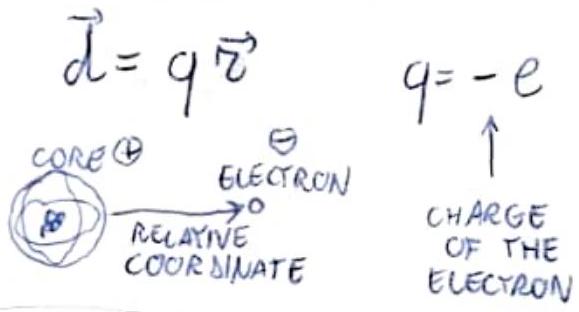 d⃗ = q r⃗
q = - e
CORE ⊕
⊖
ELECTRON
RELATIVE
COORDINATE
CHARGE
OF THE
ELECTRON